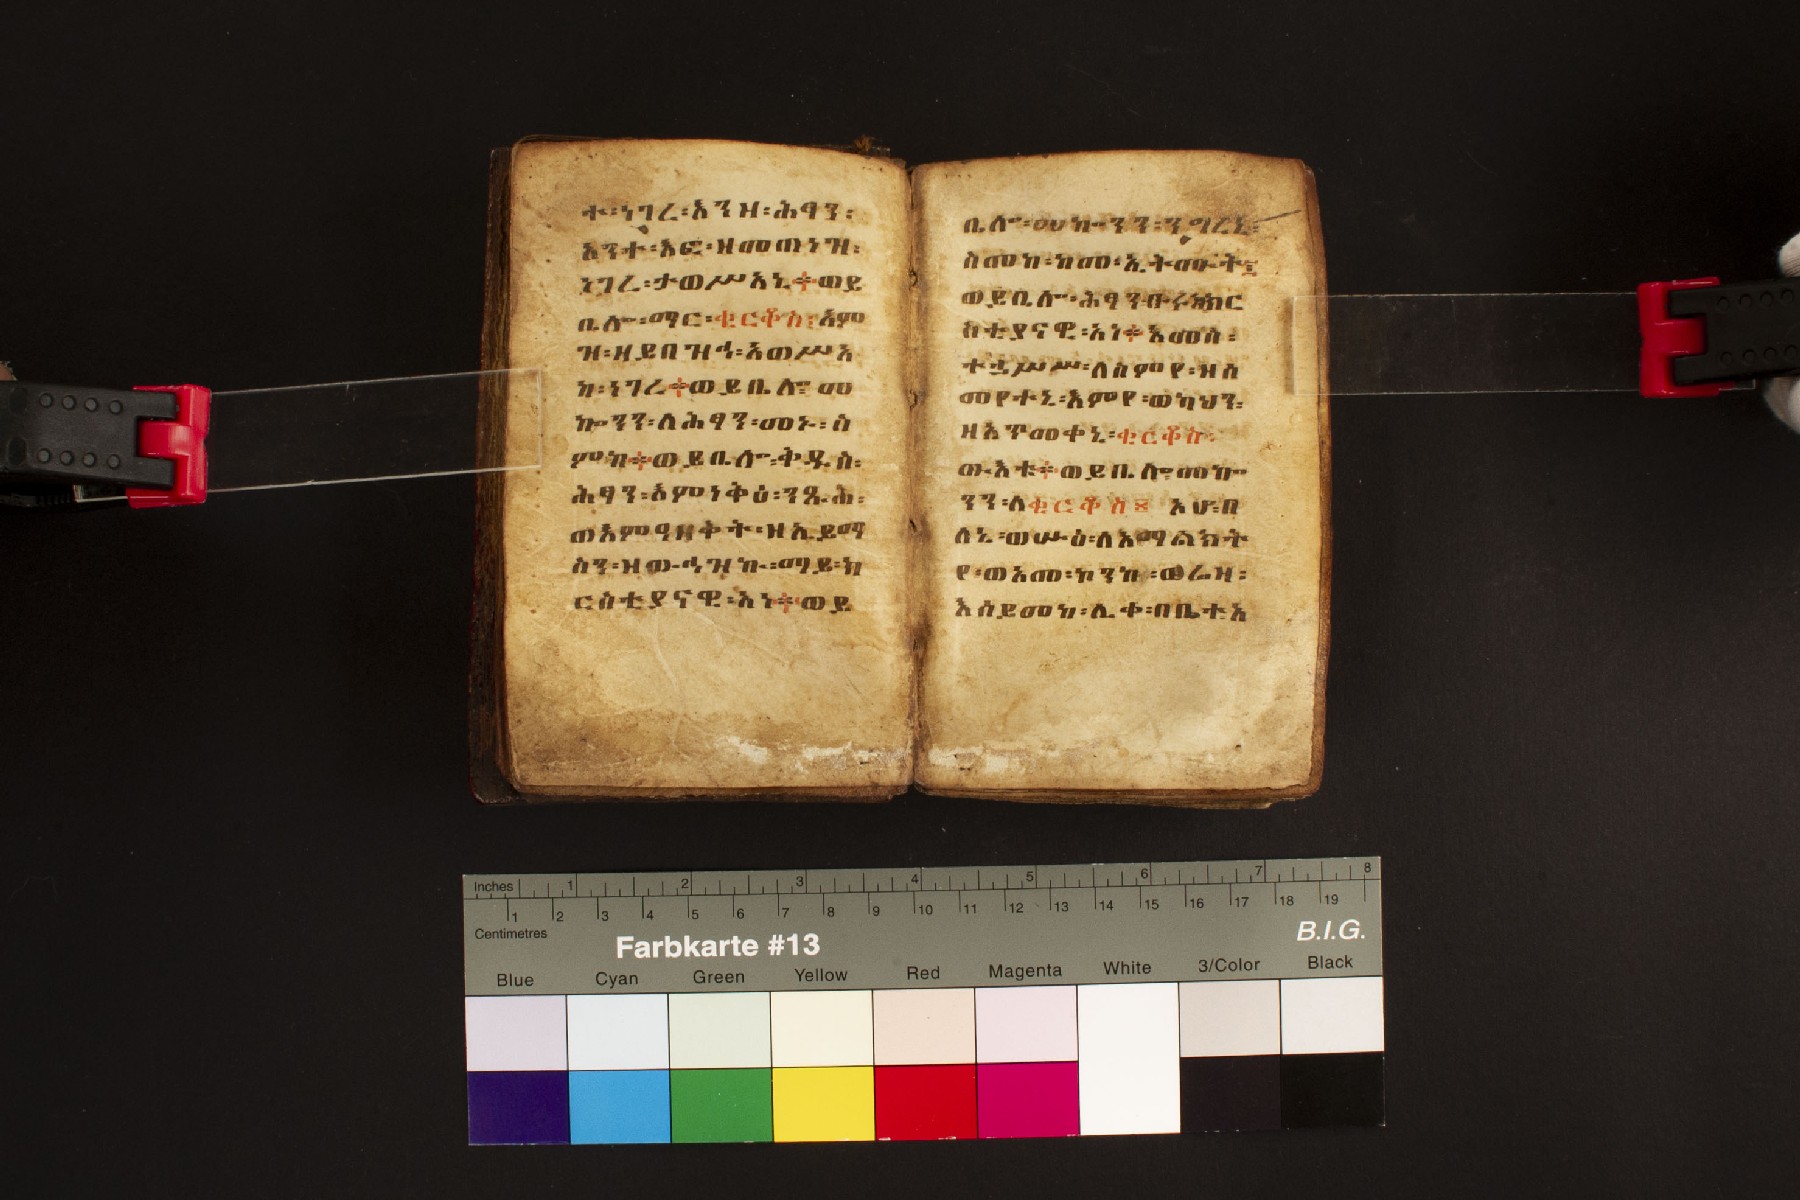 ተ፡ነገረ፡እንዘ፡ሕፃን፡
አንተ፡አፎ፡ዘመጠነዝ፡
ነገረ፡ታወሥአኒ፨ወይ
ቤሎ፡ማር፡ቂርቆስ፡እም
ዝ፡ዘይበዝኅ፡እወሥአ
ከ፡ነገረ፨ወይቤሎ፡መ
ኰንን፡ለሕፃን፡መኑ፡ስ
ምከ፨ወይቤሎ፡ቅዱስ፡
ሕፃን፡እምነቅዕ፡ንጹሕ፡
ወእምዓዘቅት፡ዘኢይማ
ስን፡ዝውኅዝከ፡ማይ፡ክ
ርስቲያናዊ፡አነ፨ወይ
ቤሎ፡መኰንን፡ንግረኒ፡
ስመከ፡ከመ፡ኢትሙት፤
ወይቤሎ፡ሕፃን፡
ስቲያናዊ፡አነ፨እመሰ፡
ለስምየ፡ዘሰ
መየተኒ፡እምየ፡ወካህን፡
ዘአጥመቀኒ፡ቂርቆስ፡
ውእቱ፨ወይቤሎ፡መኰ
ንን፡ለቂርቆስ፡፡ እሆ፡በ
ለኒ፡ወሡዕ፡ለአማልክት
የ፡ወአመ፡ኮንከ፡ወሬዛ፡
እሰይመከ፡ሊቀ፡በቤተ፡አ
Inches 1 2 3 4 5 6 7 8
1 2 3 4 5 6 7 8 9 10 11 12 13 14 15 16 17 18 19
Centimetres
Farbkarte #13
B.I.G.
Blue Cyan Green Yellow Red Magenta White 3/Color Black